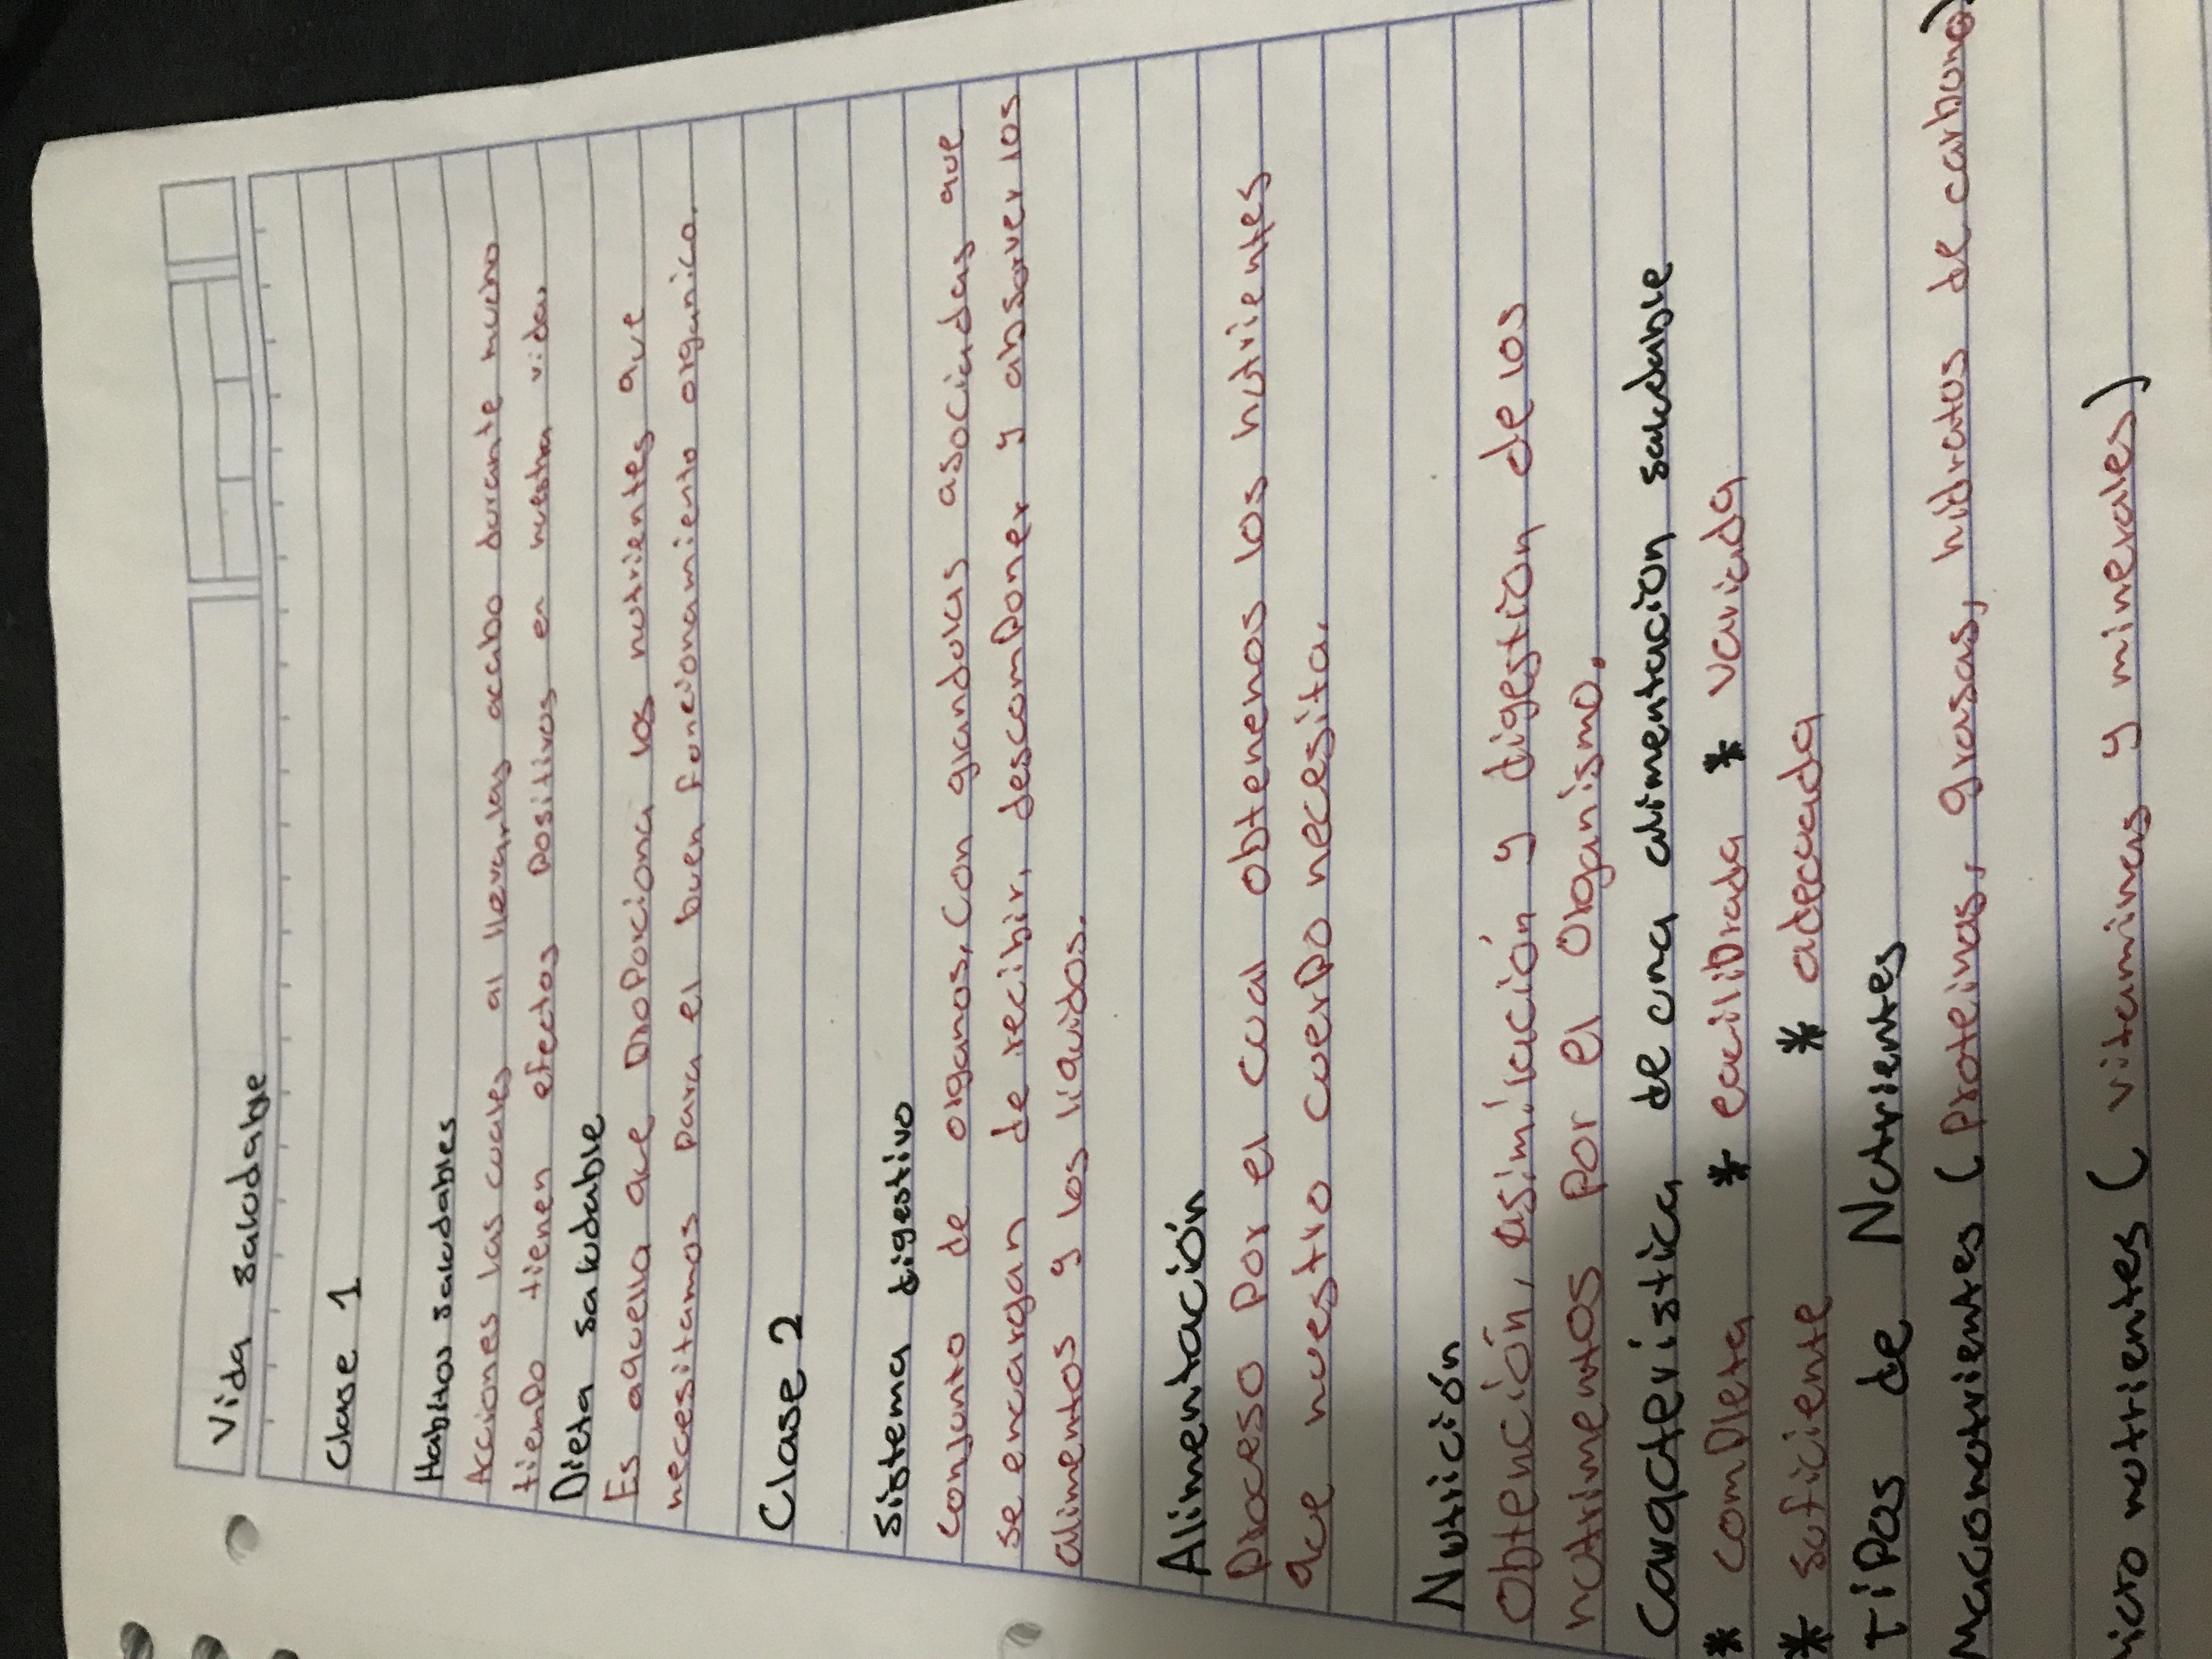 Vida saludable
Clase 1
Habitos saludables
Acciones las cuales al llevarlas acabo durante mucho
tiempo tienen efectos positivos en nuestra vida.
Dieta saludable
Es aquella que proporciona los nutrientes que
necesitamos para el buen funcionamiento organico.
Clase 2
Sistema digestivo
conjunto de organos, con glandulas asociadas que
se encargan de recibir, descomponer y absorver los
alimentos y los liquidos.
Alimentación
Proceso por el cual obtenemos los nutrientes
que nuestro cuerpo necesita.
Nutrición
Obtención, asimilación y digestion de los
nutrimentos por el organismo.
Característica de una alimentacion saludable
* completa * equilibrada * variada
* suficiente * adecuada
tipos de Nutrientes
Macronutrientes (proteinas, grasas, hidratos de carbono)
icro nutrientes ( vitaminas y minerales)